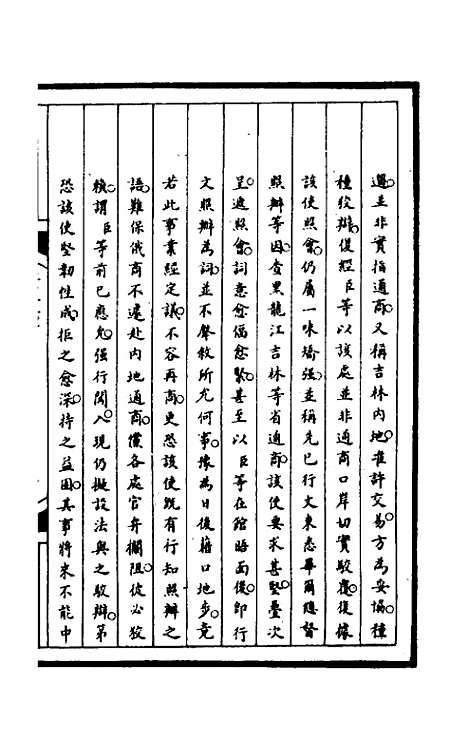 邊並非實指通商又稱吉林內地准許交易方為妥協種
種狡辯復經臣等以該處並非通商口岸切實駁覆復據
該使照會仍屬一味矯强並稱先已行文東悉畢爾總督
照辦等因查黑龍江吉林等省通商該使要求甚堅疊次
呈遞照會詞意愈偪愈緊甚至以臣等在館晤面後即行
文照辦為詞並不聲敘所允何事據為日後藉口地步竟
若此事業經定議不容再商更恐該使旣有行知照辦之
語難保俄商不遽赴內地通商儻各處官弁攔阻彼必狡
賴謂臣等前已應允强行闖入現仍擬設法與之駁辯第
恐該使堅韌性成拒之愈深持之益固其事將來不能中